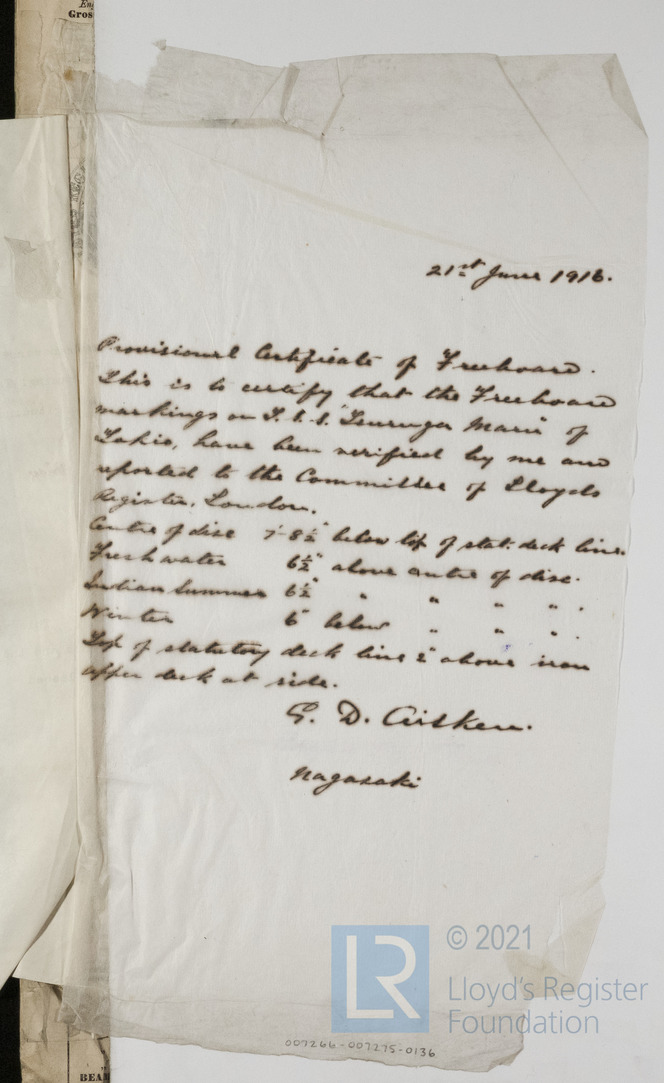 En
Gros
21st June 1916.
Provisional Certificate of Freeboard.
This is to certify that the Freeboard
markings on S.S.S. "Tsuruga Maru" of
Tokio, have been verified by me and
reported to the Committee of Lloyds
Register, London.
Centre of disc 7'-8½" below top of stat. deck line.
Fresh water 6½" above centre of disc.
Indian Summer 6½" " " " " .
Winter 6" below " " " .
Top of statutory deck line 2" above iron
upper deck at side.
G. D. Aitken.
Nagasaki
LR
© 2021
Lloyd's Register
Foundation
007266-007275-0136
BEA